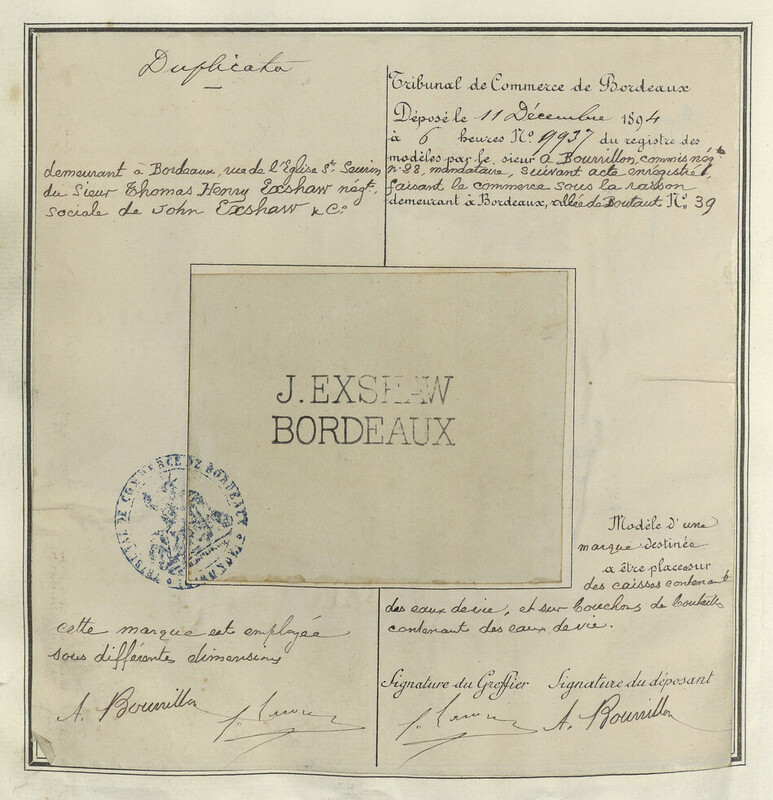 Duplicata
Tribunal de Commerce de Bordeaux
Déposé le 11 Décembre 1894
à 6 heures No. 9937 du registre des
modèles par le sieur A Bourrillon, commis négt.
demeurant à Bordeaux, rue de l'Eglise St. Seurin n. 28, mandataire, suivant acte enregistré,
du Sieur Thomas Henry Exshaw négt., faisant le commerce sous la raison
sociale de John Exshaw & Co. demeurant à Bordeaux, allée de Boutaut No. 39
J. EXSHAW
BORDEAUX
TRIBUNAL DE COMMERCE DE BORDEAUX
Modèle d'une
marque destinée
a être placée sur
des caisses contenant
des eaux de vie, et sur bouchons de bouteilles
contenant des eaux de vie.
cette marque est employée
sous différentes dimensions
Signature du Greffier Signature du déposant
A. Bourrillon
A. Bourrillon